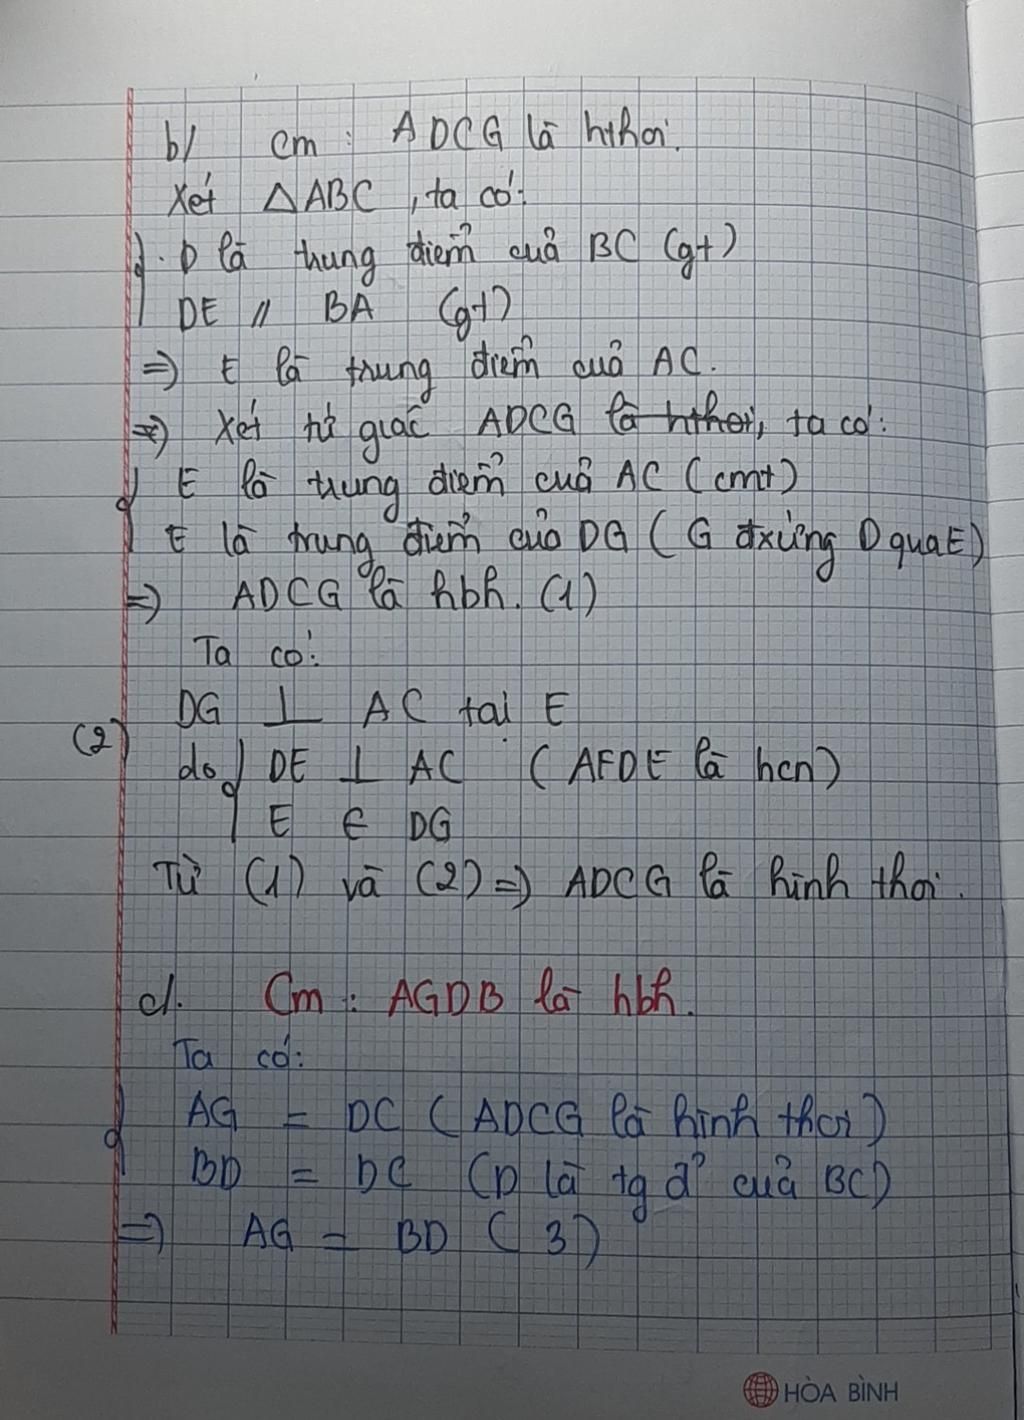 b/ Cm : ADCG là hthoi.
Xét △ABC , ta có:
. D là trung điểm của BC (gt)
DE // BA (gt)
=> E là trung điểm của AC.
=> Xét tứ giác ADCG là hthoi, ta có:
E là trung điểm của AC (cmt)
E là trung điểm của DG ( G đxứng D qua E)
=> ADCG là hbh. (1)
Ta có:
DG ⊥ AC tại E
(2)
do DE ⊥ AC ( AFDE là hcn)
E ∈ DG
Từ (1) và (2) => ADCG là hình thoi.
c/. Cm : AGDB là hbh.
Ta có:
AG = DC ( ADCG là hình thoi)
BD = DC (D là tg đ² của BC)
=> AG = BD ( 3)
HÒA BÌNH